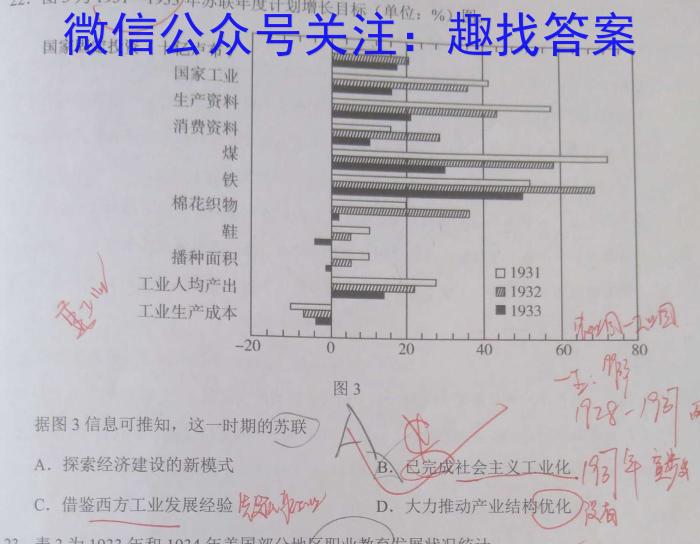 22. 图3为1931—1933年苏联年度计划增长目标（单位：%）图
微信公众号关注：趣找答案
国家
国家工业
生产资料
消费资料
煤
铁
棉花织物
鞋
播种面积
工业人均产出
工业生产成本
1931
1932
1933
-20 0 20 40 60 80
图3
重工业
据图3信息可推知，这一时期的苏联
A. 探索经济建设的新模式
B. 已完成社会主义工业化
C. 借鉴西方工业发展经验
D. 大力推动产业结构优化
1928-1937
1937年
没有
23. 表2为1933年和1934年美国部分地区职业教育发展状况统计